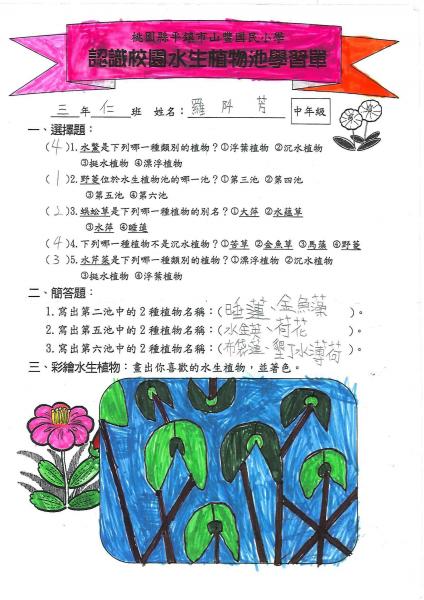 桃園縣平鎮市山豐國民小學
認識校園水生植物池學習單
三年仁班 姓名：羅 芳 中年級
一、選擇題：
(4)1.水鱉是下列哪一種類別的植物？①浮葉植物 ②沉水植物
③挺水植物 ④漂浮植物
(1)2.野菱位於水生植物池的哪一池？①第三池 ②第四池
③第五池 ④第六池
(2)3.蜈蚣草是下列哪一種植物的別名？①大萍 ②水蘊草
③水萍 ④睡蓮
(4)4.下列哪一種植物不是沉水植物？①苦草 ②金魚草 ③馬藻 ④野菱
(3)5.水芹菜是下列哪一種類別的植物？①漂浮植物 ②沉水植物
③挺水植物 ④浮葉植物
二、簡答題：
1.寫出第二池中的2種植物名稱：(睡蓮、金魚藻)。
2.寫出第五池中的2種植物名稱：(水金英、荷花)。
3.寫出第六池中的2種植物名稱：(布袋蓮、墾丁水薄荷)。
三、彩繪水生植物：畫出你喜歡的水生植物，並著色。